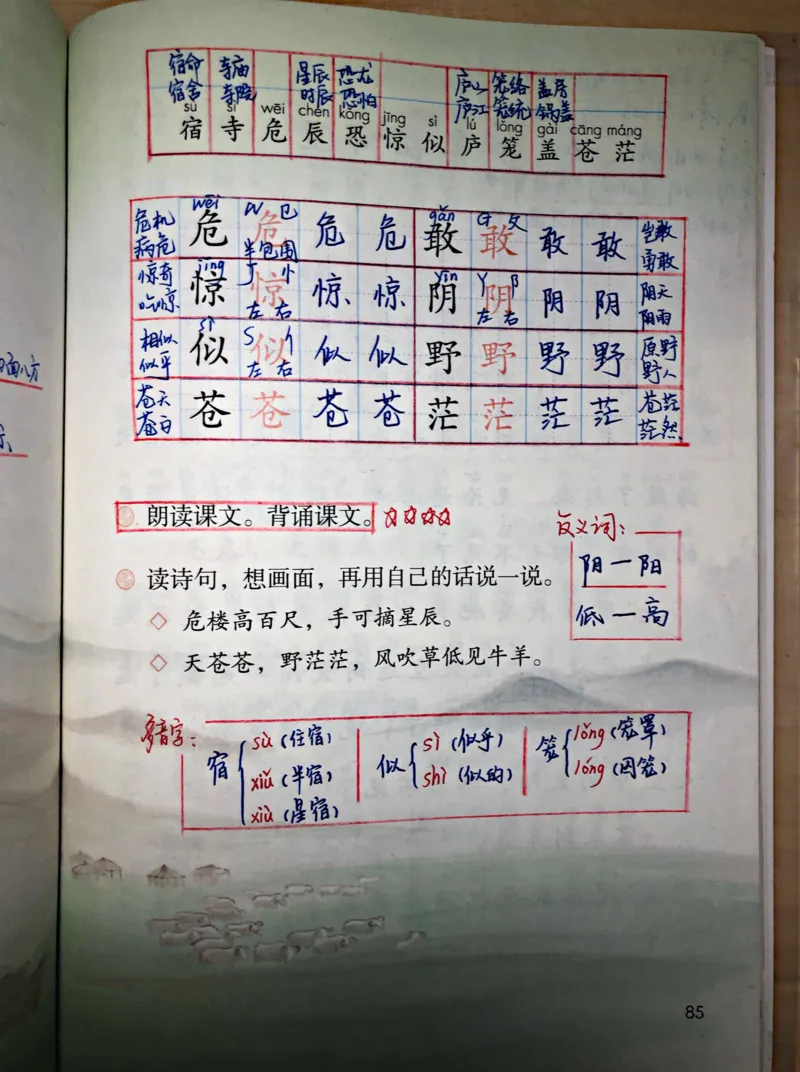 宿命 寺庙 星辰 恐龙 庐山 笼络 盖房
宿舍 寺院 时辰 恐怕 庐江 笼统 锅盖
sù sì wēi chén kǒng jīng sì lú lǒng gài cāng máng
宿 寺 危 辰 恐 惊 似 庐 笼 盖 苍 茫
wēi W 㔾 gǎn G 攵
危机 危 危 危 危 敢 敢 敢 敢 岂敢
病危 半包围 勇敢
jīng J 忄 yīn Y 阝
惊奇 惊 惊 惊 惊 阴 阴 阴 阴 阴天
吃惊 左右 左右 阴雨
sì S 亻
相似 似 似 似 似 野 野 野 野 原野
似乎 左右 野人
苍天 苍 苍 苍 苍 茫 茫 茫 茫 苍茫
苍白 茫然
朗读课文。背诵课文。☆☆☆☆
反义词：
读诗句，想画面，再用自己的话说一说。
阴一阳
◇ 危楼高百尺，手可摘星辰。
低一高
◇ 天苍苍，野茫茫，风吹草低见牛羊。
多音字：
宿 sù（住宿）
xiǔ（半宿）
xiù（星宿）
似 sì（似乎）
shì（似的）
笼 lǒng（笼罩）
lóng（囚笼）
85